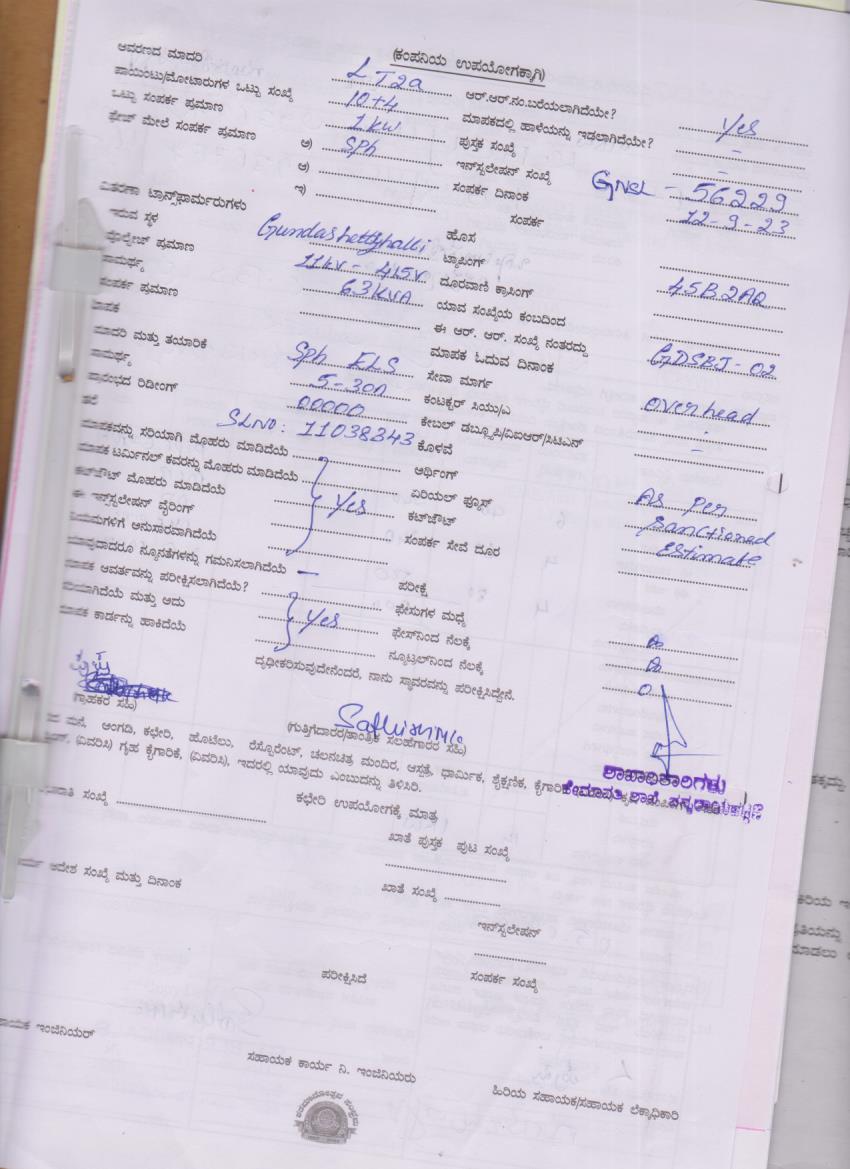 (ಕಂಪನಿಯ ಉಪಯೋಗಕ್ಕಾಗಿ)
ಆವರಣದ ಮಾದರಿ LT2a ಆರ್.ಆರ್.ನಂ.ಬರೆಯಲಾಗಿದೆಯೇ? Yes
ಪಾಯಿಂಟು/ಮೋಟಾರುಗಳ ಒಟ್ಟು ಸಂಖ್ಯೆ 10+4 ಮಾಪಕದಲ್ಲಿ ಹಾಳೆಯನ್ನು ಇಡಲಾಗಿದೆಯೇ? -
ಒಟ್ಟು ಸಂಪರ್ಕ ಪ್ರಮಾಣ 1kw ಪುಸ್ತಕ ಸಂಖ್ಯೆ -
ಫೇಜ್ ಮೇಲೆ ಸಂಪರ್ಕ ಪ್ರಮಾಣ ಅ) Sph ಇನ್‌ಸ್ಟಲೇಷನ್ ಸಂಖ್ಯೆ GNCL - 56229
ಆ) ಸಂಪರ್ಕ ದಿನಾಂಕ 12-9-23
ಇ) ಸಂಪರ್ಕ
ವಿತರಣಾ ಟ್ರಾನ್ಸ್‌ಫಾರ್ಮರುಗಳು
ಇರುವ ಸ್ಥಳ Gundashettyhalli ಹೊಸ
ವೋಲ್ಟೇಜ್ ಪ್ರಮಾಣ 11kv - 415v ಟ್ಯಾಪಿಂಗ್
ಸಾಮರ್ಥ್ಯ 63KVA ದೂರವಾಣಿ ಕ್ರಾಸಿಂಗ್ 45B2AQ
ಸಂಪರ್ಕ ಪ್ರಮಾಣ ಯಾವ ಸಂಖ್ಯೆಯ ಕಂಬದಿಂದ
ಮಾಪಕ ಈ ಆರ್. ಆರ್. ಸಂಖ್ಯೆ ನಂತರದ್ದು
ಮಾದರಿ ಮತ್ತು ತಯಾರಿಕೆ Sph ELS ಮಾಪಕ ಓದುವ ದಿನಾಂಕ GDSBJ-02
ಸಾಮರ್ಥ್ಯ 5-30A ಸೇವಾ ಮಾರ್ಗ overhead
ಪ್ರಾರಂಭದ ರಿಡೀಂಗ್ 00000 ಕಂಟಕ್ಟರ್ ಸಿಯು/ಎ
ಕೇಬಲ್ ಡಬ್ಲ್ಯೂಪಿ/ವಿಐಆರ್/ಸಿಟಿಎನ್ -
SLNO: 11038343 ಕೊಳವೆ
ಮಾಪಕವನ್ನು ಸರಿಯಾಗಿ ಮೊಹರು ಮಾಡಿದೆಯೆ ಅರ್ಥಿಂಗ್
ಮಾಪಕ ಟರ್ಮಿನಲ್ ಕವರನ್ನು ಮೊಹರು ಮಾಡಿದೆಯೆ Yes ಏರಿಯಲ್ ಫ್ಯೂಸ್ As per
ಕಟ್‌ಔಟ್ ಮೊಹರು ಮಾಡಿದೆಯೆ ಕಟ್‌ಔಟ್ Sanctioned
ಈ ಇನ್‌ಸ್ಟಲೇಷನ್ ವೈರಿಂಗ್ ಸಂಪರ್ಕ ಸೇವೆ ದೂರ Estimate
ನಿಯಮಗಳಿಗೆ ಅನುಸಾರವಾಗಿದೆಯೆ
ಯಾವುದಾದರೂ ನ್ಯೂನತೆಗಳನ್ನು ಗಮನಿಸಲಾಗಿದೆಯೆ — ಪರೀಕ್ಷೆ
ಮಾಪಕ ಆವರ್ತವನ್ನು ಪರೀಕ್ಷಿಸಲಾಗಿದೆಯೆ? ಫೇಸುಗಳ ಮಧ್ಯೆ
ಸರಿಯಾಗಿದೆಯೆ ಮತ್ತು ಅದು Yes ಫೇಸ್‌ನಿಂದ ನೆಲಕ್ಕೆ
ಮಾಪಕ ಕಾರ್ಡನ್ನು ಹಾಕಿದೆಯೆ ನ್ಯೂಟ್ರಲ್‌ನಿಂದ ನೆಲಕ್ಕೆ
ದೃಢೀಕರಿಸುವುದೇನೆಂದರೆ, ನಾನು ಸ್ಥಾವರವನ್ನು ಪರೀಕ್ಷಿಸಿದ್ದೇನೆ.
(ಗ್ರಾಹಕರ ಸಹಿ) (ಗುತ್ತಿಗೆದಾರರ/ತಾಂತ್ರಿಕ ಸಲಹೆಗಾರರ ಸಹಿ)
ಮನೆ, ಅಂಗಡಿ, ಕಛೇರಿ, ಹೊಟೆಲು, ರೆಸ್ಟೊರೆಂಟ್, ಚಲನಚಿತ್ರ ಮಂದಿರ, ಆಸ್ಪತ್ರೆ, ಧಾರ್ಮಿಕ, ಶೈಕ್ಷಣಿಕ,
(ವಿವರಿಸಿ) ಗೃಹ ಕೈಗಾರಿಕೆ, (ವಿವರಿಸಿ), ಇದರಲ್ಲಿ ಯಾವುದು ಎಂಬುದನ್ನು ತಿಳಿಸಿರಿ.
ಶಾಖಾಧಿಕಾರಿಗಳು
ಕಛೇರಿ ಉಪಯೋಗಕ್ಕೆ ಮಾತ್ರ
ಸಂಖ್ಯೆ ಖಾತೆ ಪುಸ್ತಕ ಪುಟ ಸಂಖ್ಯೆ
ಆದೇಶ ಸಂಖ್ಯೆ ಮತ್ತು ದಿನಾಂಕ ಖಾತೆ ಸಂಖ್ಯೆ
ಇನ್‌ಸ್ಟಲೇಷನ್
ಪರೀಕ್ಷಿಸಿದೆ ಸಂಪರ್ಕ ಸಂಖ್ಯೆ
ಇಂಜಿನಿಯರ್ ಸಹಾಯಕ ಕಾರ್ಯ ನಿ. ಇಂಜಿನಿಯರು ಹಿರಿಯ ಸಹಾಯಕ/ಸಹಾಯಕ ಲೆಕ್ಕಾಧಿಕಾರಿ